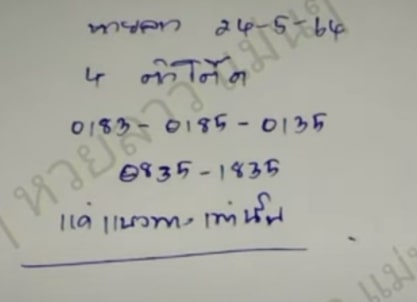 หวยลาว 24-5-64
4 ตัวโต๊ด
0183-0185-0135
0835-1835
แค่แนวทางเท่านั้น
หวยลาวแม่นๆ